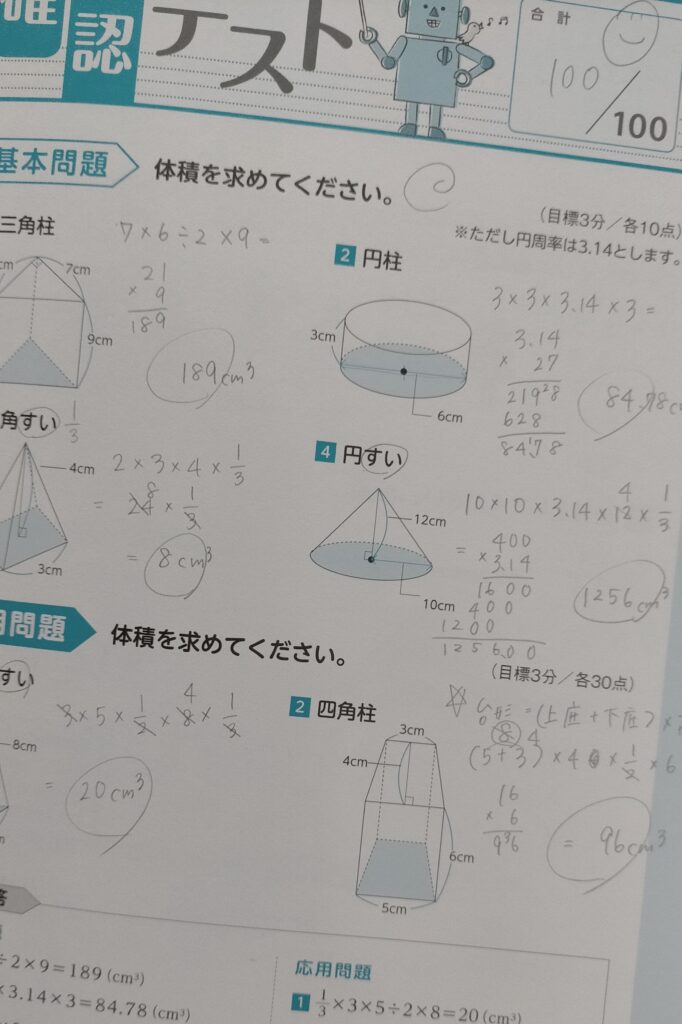 確認テスト
合計
100/100
基本問題 体積を求めてください。
(目標3分/各10点)
※ただし円周率は3.14とします。
三角柱
7×6÷2×9=
21
× 9
189
189cm³
cm
7cm
9cm
2 円柱
3×3×3.14×3=
3.14
× 27
2198
628
8478
84.78c
3cm
6cm
角すい 1/3
2×3×4×1/3
= 24 8 × 1/3
= 8cm³
4cm
3cm
4 円すい
10×10×3.14×12 4 ×1/3
= 400
×3.14
1600
400
1200
125600
1256cm³
12cm
10cm
用問題 体積を求めてください。
(目標3分/各30点)
すい
3×5×1/2×8 4 ×1/3
= 20cm³
8cm
2 四角柱
☆ 台形=(上底+下底)×
8 4
(5+3)×4×1/2×6
16
× 6
96
= 96cm³
3cm
4cm
6cm
5cm
答
÷2×9=189 (cm³)
×3.14×3=84.78 (cm³)
応用問題
1 1/3×3×5÷2×8=20 (cm³)